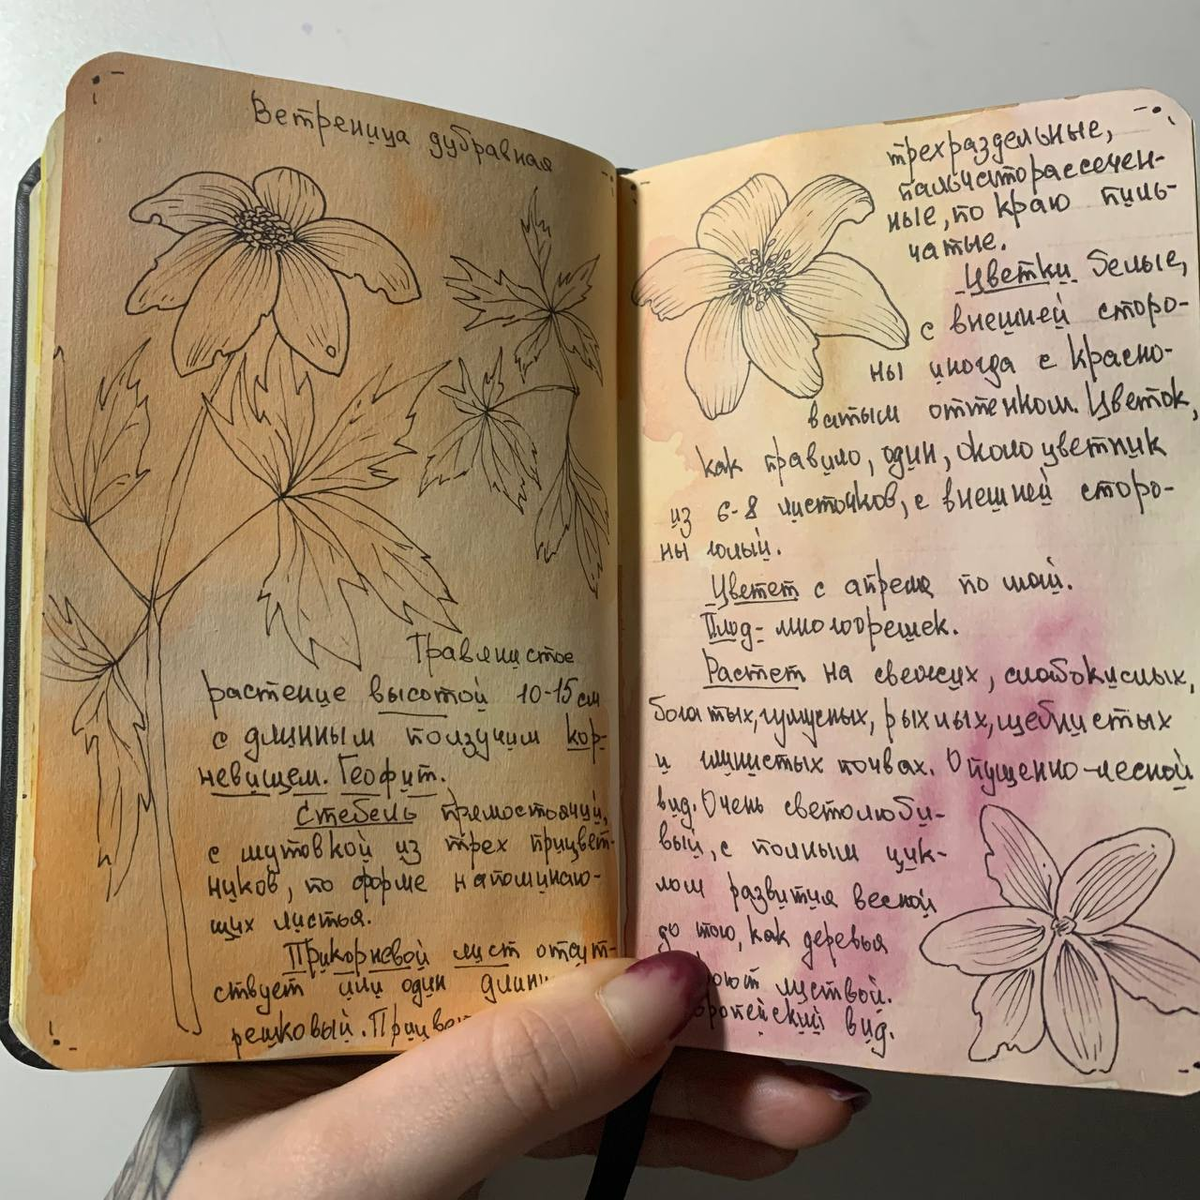 Ветреница дубравная
Травянистое
растение высотой 10-15 см
с длинным ползучим кор-
невищем. Геофит.
Стебель прямостоячий,
с мутовкой из трех прицвет-
ников, по форме напоминаю-
щих листья.
Прикорневой лист отсут-
ствует или один
решковый.
трехраздельные,
пальчаторассечен-
ные, по краю пиль-
чатые.
Цветки белые,
с внешней сторо-
ны иногда с красно-
ватым оттенком. Цветок,
как правило, один, околоцветник
из 6-8 листочков, с внешней сторо-
ны голый.
Цветет с апреля по май.
Плод- многоорешек.
Растет на свежих, слабокислых,
богатых, гумусных, рыхлых, щебнистых
и глинистых почвах. Опушечно-лесной
вид. Очень светолюби-
вый, с полным цик-
лом развития весной
до того, как деревья
листвой.
вид.